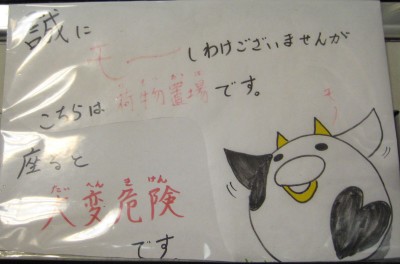 誠に
モーしわけございませんが
こちらは荷物置場です。
座ると
たい へん き けん
大変危険
です